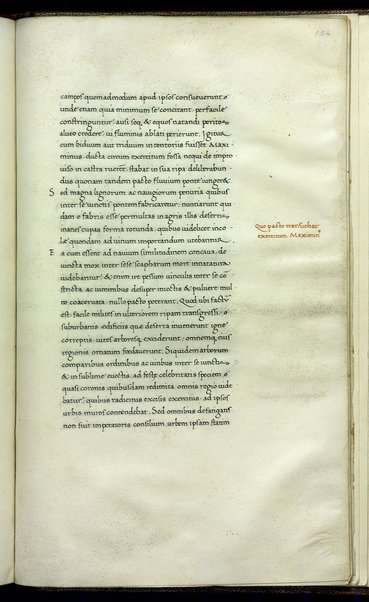 102
campos quemadmodum apud ipsos consueuerunt o
unde etiam quia minimum se concitant perfacile
constringuntur: ausi seq. & equos natandi perito
alueo credere: ui fluminis ablati perierunt. Igitur
cum biduum aut triduum in tentoriis fuisset Maxi
minus: ducta circum exercitum fossa nequi de impro
uiso in castra ruerent. stabat in sua ripa deliberabun
dus quonam tandem pacto fluuium ponte iungeret.
Sed magna lignorum ac nauigiorum penuria quibus
inter se iunctis pontem fabricaretur. nuntiarunt qui
dam e fabris esse permultas in agris illis desertis
inanes cupas forma rotunda. quibus uidelicet inco
lae quondam ad uinum importandum utebantur.
Ea cum essent ad nauium similitudinem concaua. de
uincta mox inter sese scapharum more innatatura
uidebantur: & enim ire pessum uinculis inter se co
stricta. ac uiminibus desuper iniectis & puluere mul
to coaceruata. nullo pacto poterant. Quod ubi factum
est: facile milites in ulteriorem ripam transgressi:
suburbanis aedificiis quae deserta inuenerunt igne
correptis. uites arboresq. exciderunt: omnemq. eius
regionis ornatum foedauerunt. Siquidem arborum
comparibus ordinibus ac uitibus inter se iunctis
& in sublime euectis. ad festae celebritatis speciem
quasi coronis quibusdam redimita omnis regio uide
batur: quibus radicitus excisis exercitus ad ipsos
urbis muros contendebat. Sed omnibus defatigatis
non fuit imperatoris consilium urbem ipsam statim
Quo pacto transuehat
exercitum Maximin9